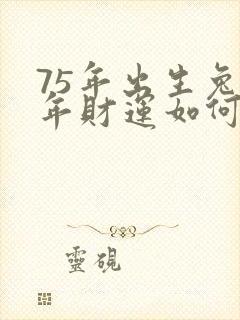 75年出生兔
年財運如何
靈硯